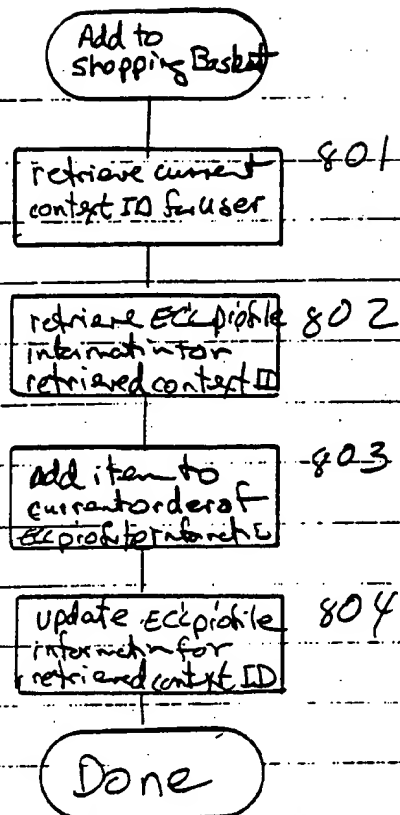 Add to
shopping Basket
801
retrieve current
context ID for user
802
retrieve ECL profile
information for
retrieved context ID
803
add item to
current order of
ECL profile information
804
update ECL profile
information for
retrieved context ID
Done